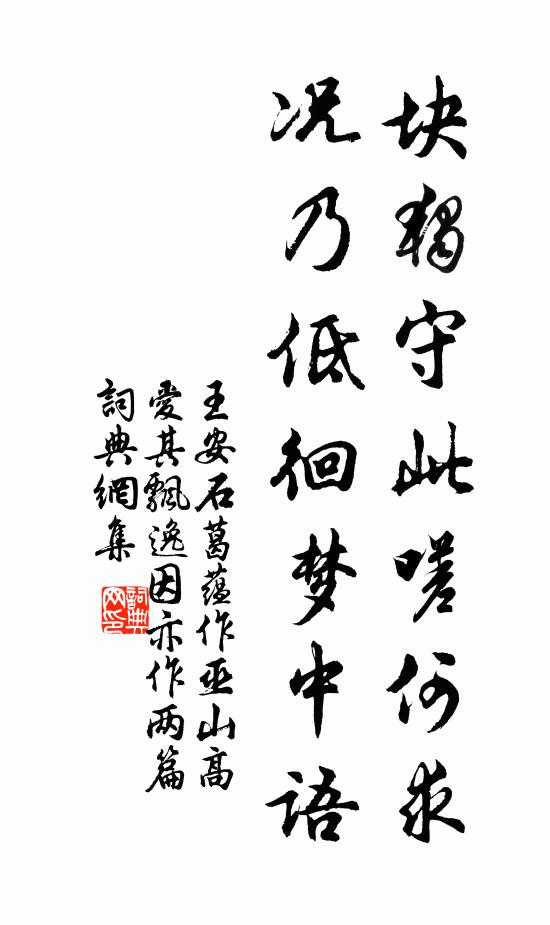 块独守此嗟何求
况乃低徊梦中语
王安石葛蕴作巫山高
爱其飘逸因亦作两篇
詞典網集
詞典
网印